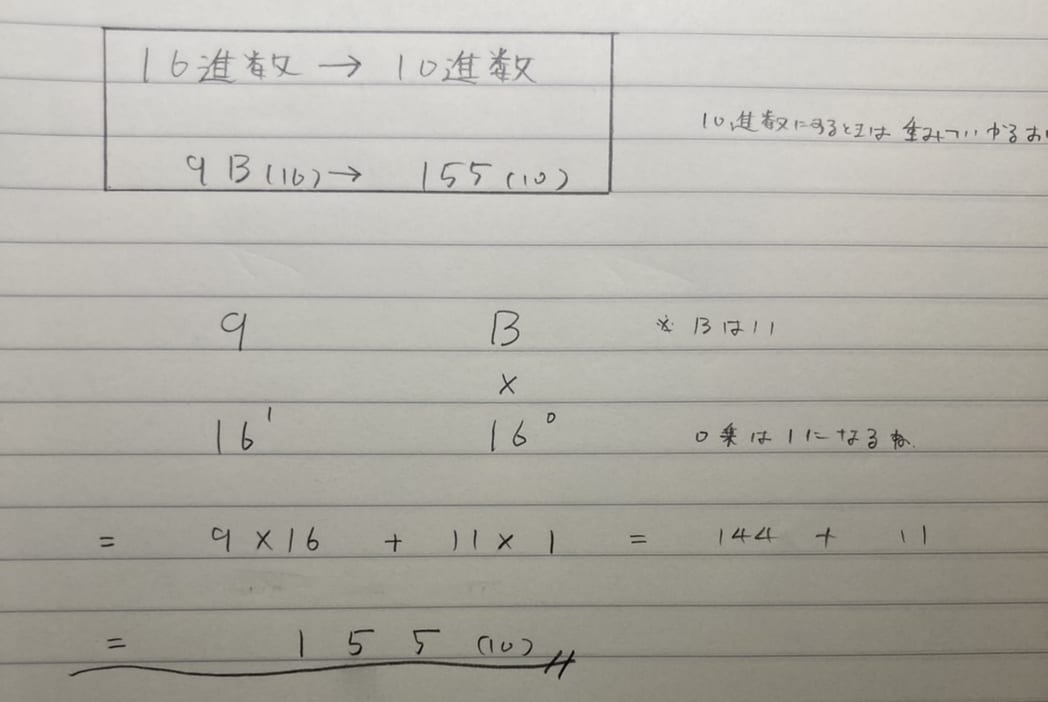 16進数 → 10進数
10進数にするときは 重み
9B(16) → 155(10)
9 B ※ Bは11
×
16¹ 16⁰ 0乗は1になるね
= 9×16 + 11×1 = 144 + 11
= 155(10)